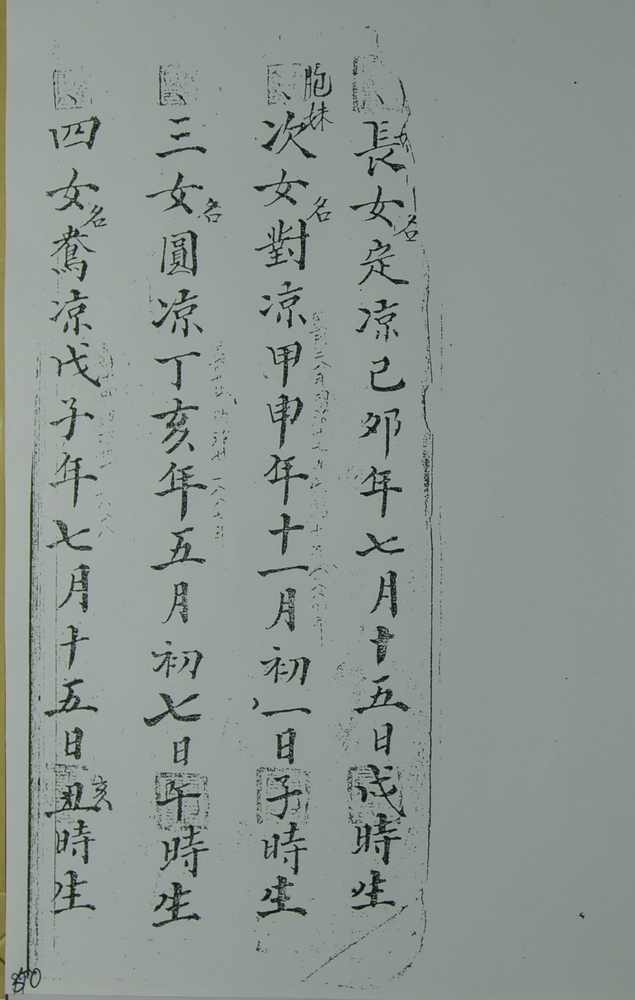 長女名定凉己卯年七月十五日戌時生
胞妹
次女名對凉甲申年十一月初一日子時生
三女名圓凉丁亥年五月初七日午時生
四女名凉戊子年七月十五日丑時生
亥